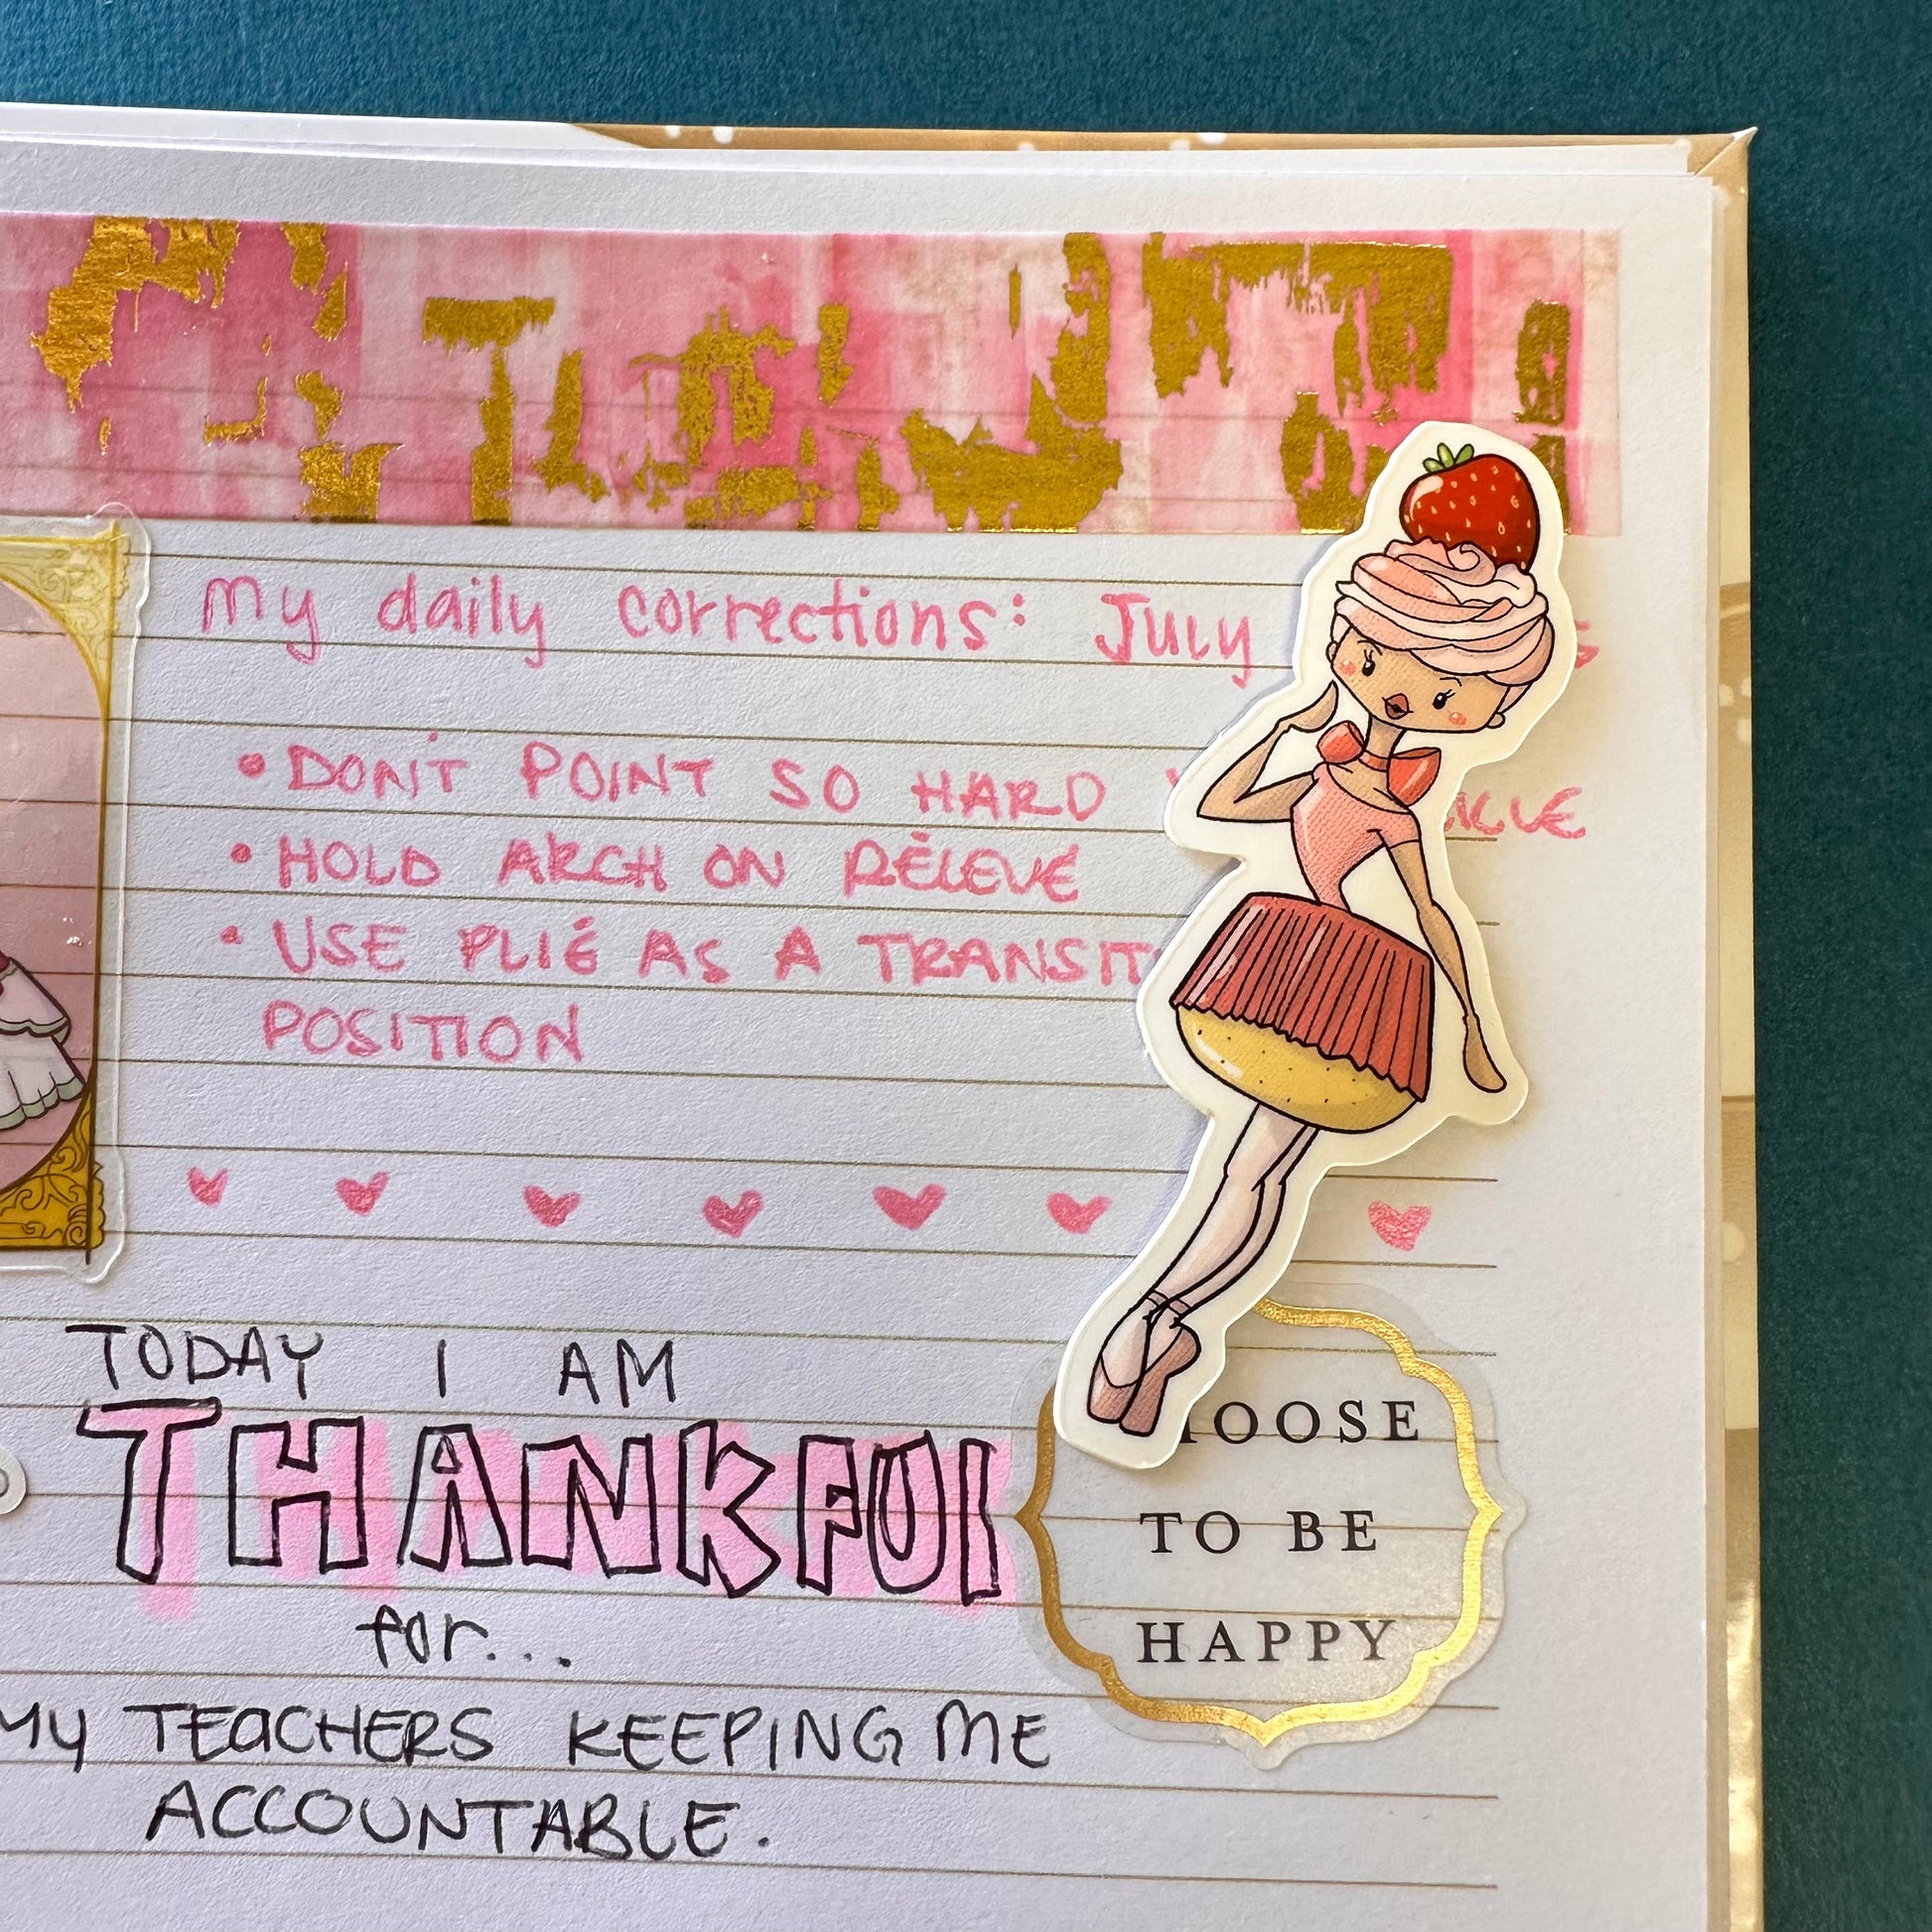 my daily corrections: July
• DON'T POINT SO HARD
• HOLD ARCH ON RÈLEVÉ
• USE PLIÉ AS A
POSITION
TODAY I AM
THANKFUL
for...
MY TEACHERS KEEPING ME
ACCOUNTABLE.
TO BE
HAPPY